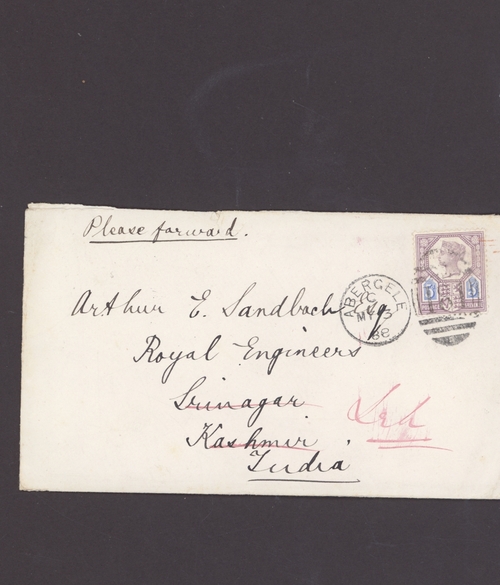 Please forward.
Arthur E. Sandbach Esq
Royal Engineers
Srinagar
Kashmir
India
Leh
ABERGELE
C
MY 3
88
5 5